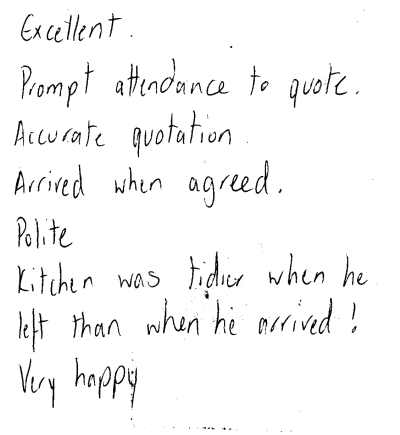 Excellent.
Prompt attendance to quote.
Accurate quotation.
Arrived when agreed.
Polite
Kitchen was tidier when he
left than when he arrived!
Very happy